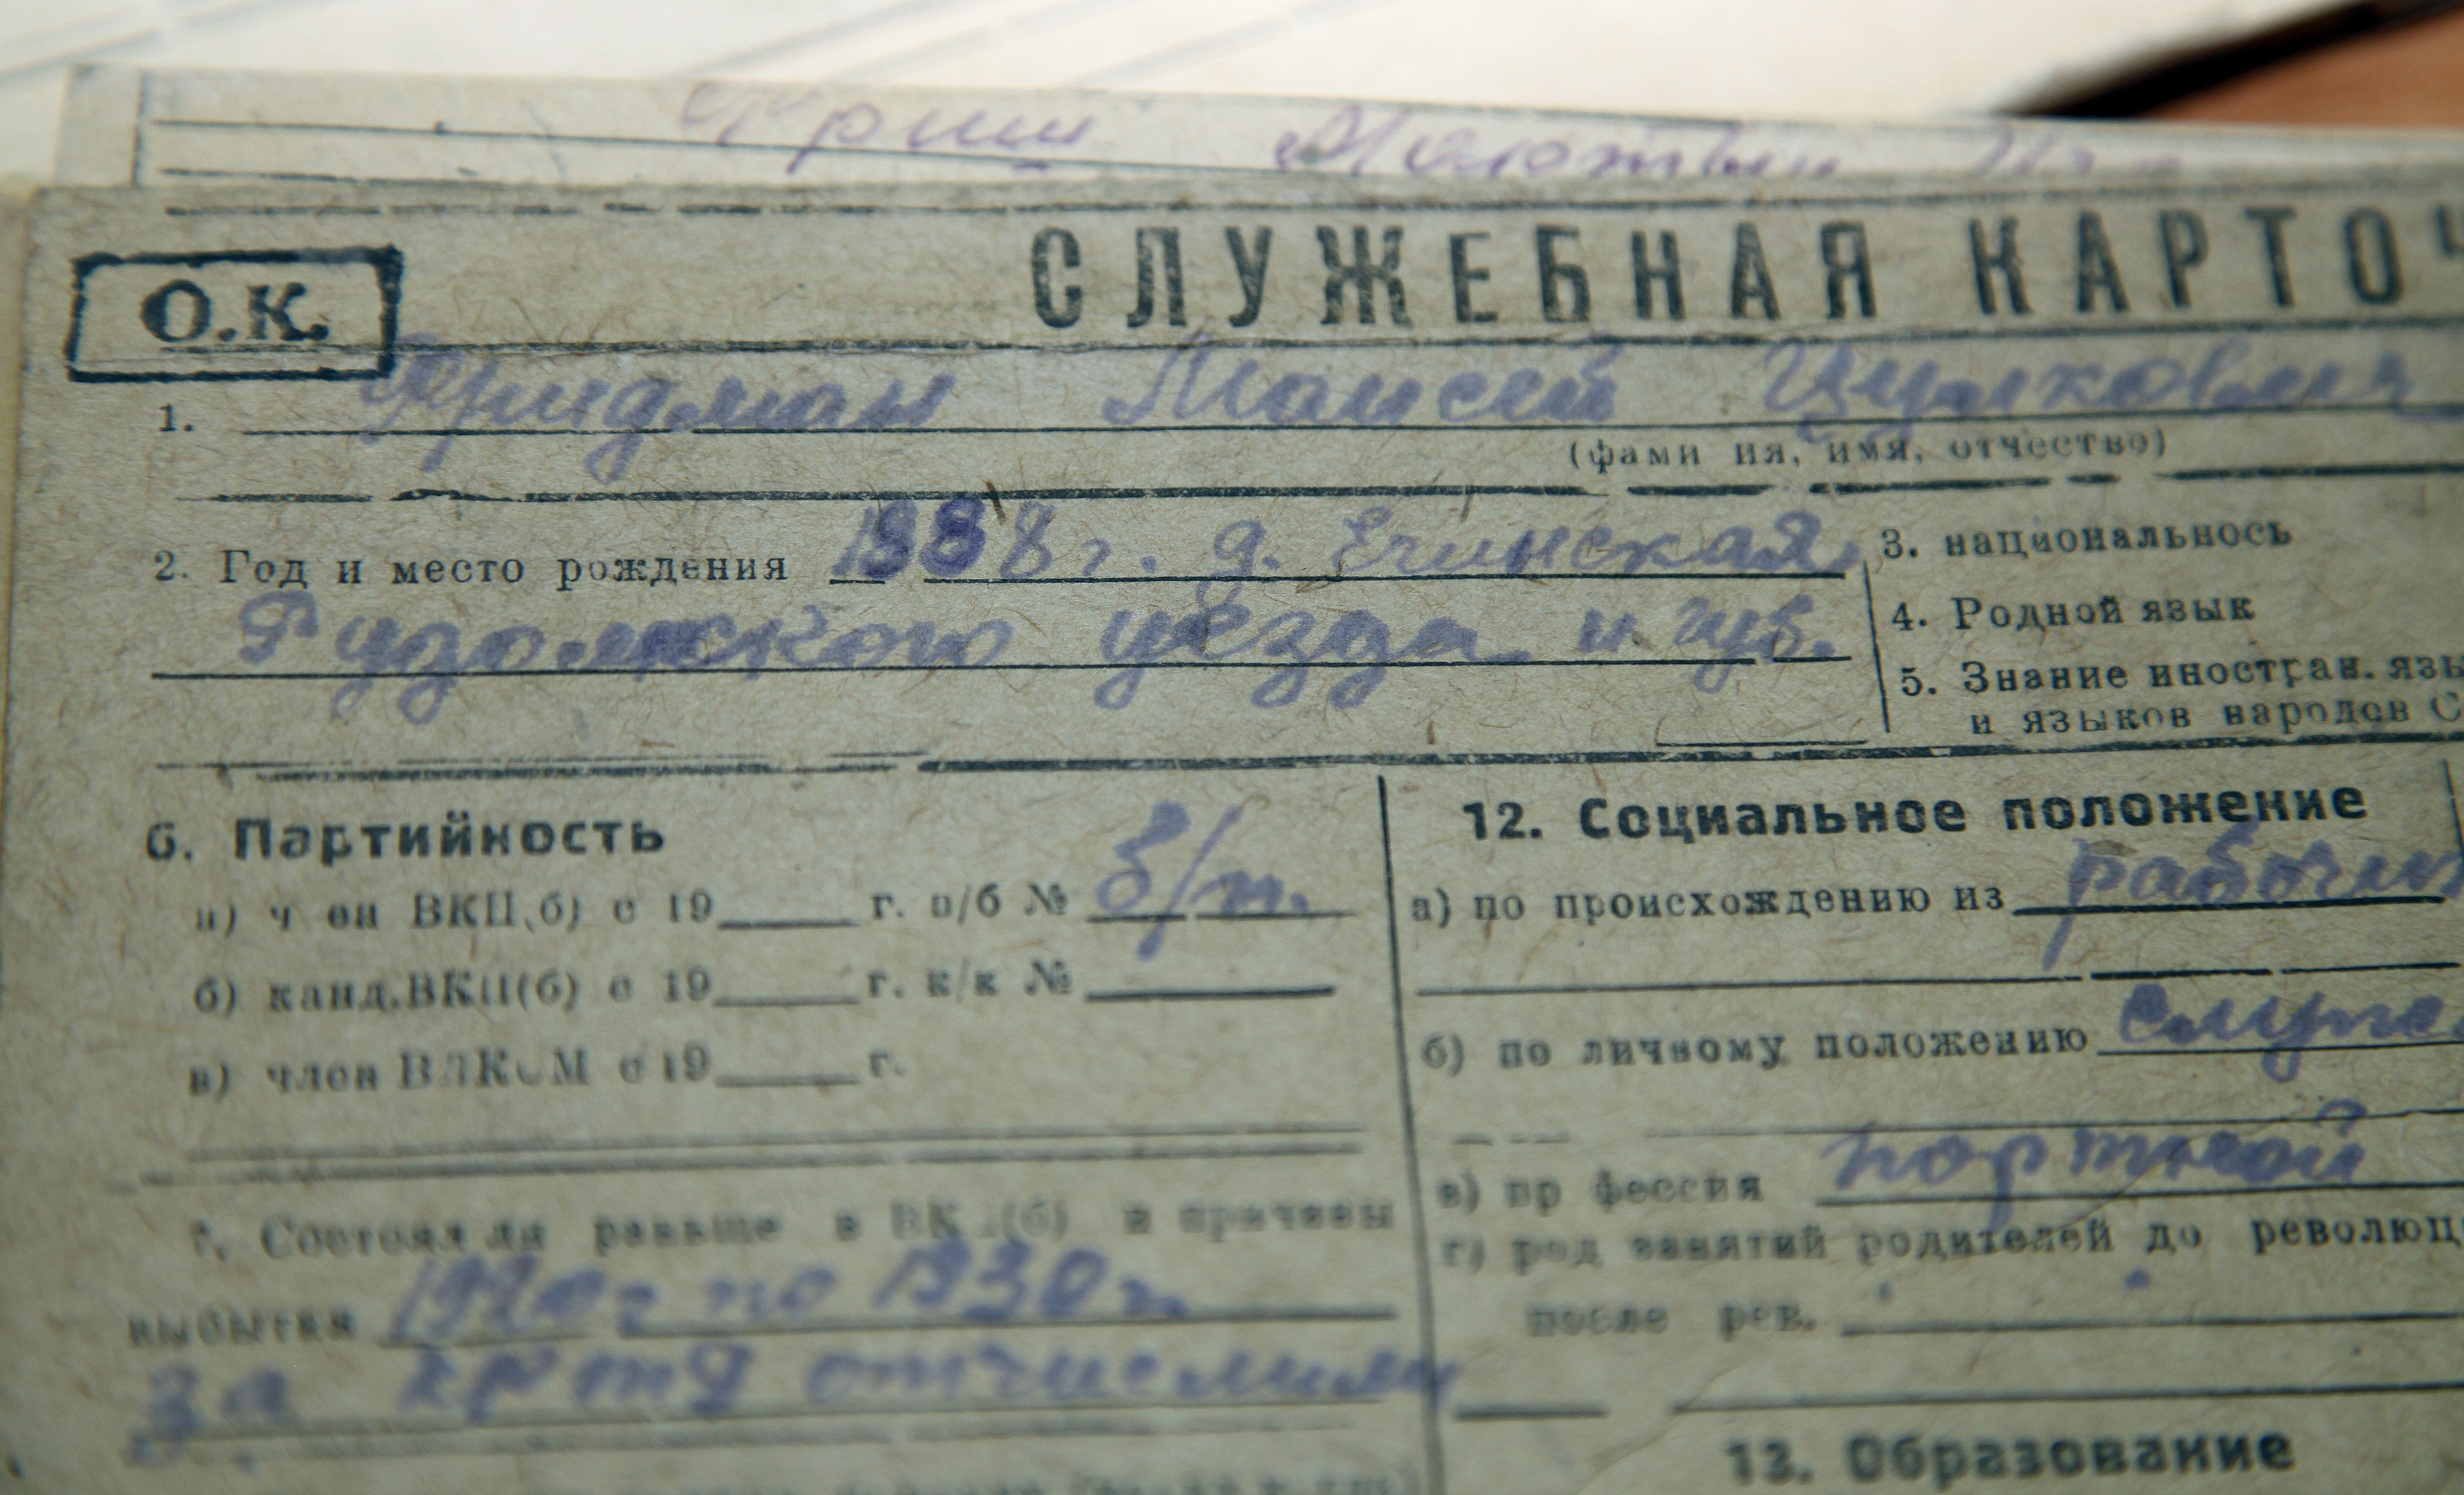 СЛУЖЕБНАЯ КАРТОЧ
О.К.
1. Фридман Моисей
(фами ия, имя, отчество)
2. Год и место рождения 1888 г. д.
уезда и губ.
3. национальнось
4. Родной язык
5. Знание иностран. язы
и языков народов С
6. Партийность
а) ч ен ВКП(б) с 19 г. п/б № б/п.
б) канд.ВКП(б) с 19 г. к/к №
в) член ВЛКСМ с 19 г.
7. Состоял ли раньше в ВКП(б) и причины
выбытия 1920 г по 1930 г.
за
12. Социальное положение
а) по происхождению из рабочих
б) по личному положению служ
в) пр фессия портной
г) род занятий родителей до революц
после рев.
13. Образование